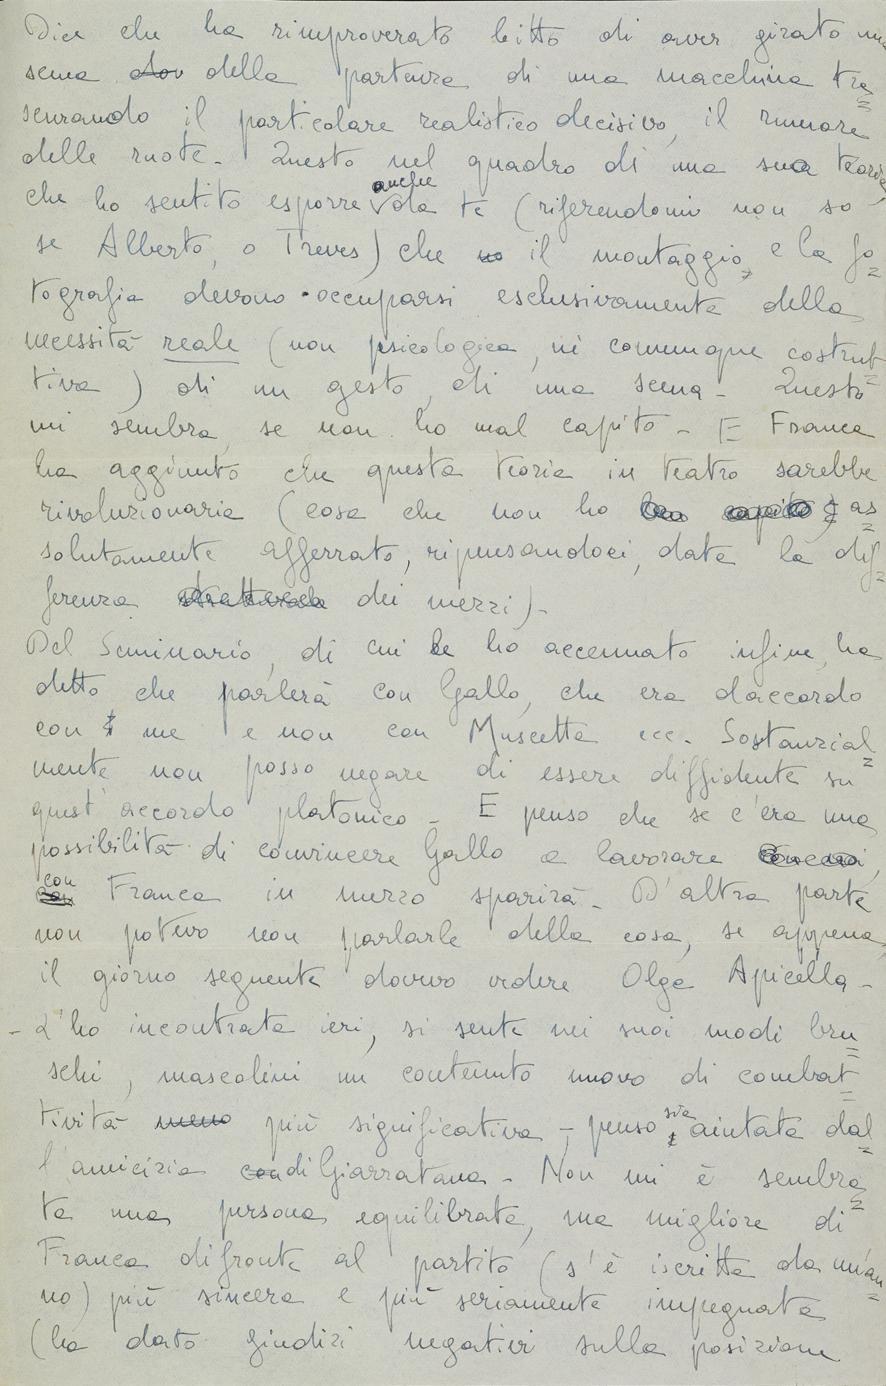 Dice che ha rimproverato Citto di aver girato una
scena della partenza di una macchina tra=
scurando il particolare realistico decisivo, il rumore
delle ruote. Questo nel quadro di una sua teoria,
che ho sentito esporre anche da te (riferendomi non so
se Alberto, o Treves) che il montaggio, e la fo=
tografia devono occuparsi esclusivamente della
necessità reale (non psicologica, nè comunque costrut=
tiva) di un gesto, di una scena. Questo
mi sembra, se non ho mal capito. E Franca
ha aggiunto che questa teoria in teatro sarebbe
rivoluzionaria (cosa che non ho as=
solutamente afferrato, ripensandoci, data la dif=
ferenza dei mezzi).
Del Seminario, di cui le ho accennato infine, ha
detto che parlerà con Gallo, che era daccordo
con me e non con Muscetta ecc. Sostanzial=
mente non posso negare di essere diffidente su
quest'accordo platonico. E penso che se c'era una
possibilità di convincere Gallo a lavorare,
con Franca in mezzo sparirà. D'altra parte
non potevo non parlarle della cosa, se appena,
il giorno seguente dovevo vedere Olga Apicella.
- L'ho incontrata ieri, si sente nei suoi modi bru=
schi, mascolini un contenuto nuovo di combat=
tività più significativa - penso sia aiutata dal=
l'amicizia di Giarratana. Non mi è sembra=
ta una persona equilibrata, ma migliore di
Franca difronte al partito (s'è iscritta da un'an=
no) più sincera e più seriamente impegnata
(ha dato giudizi negativi sulla posizione